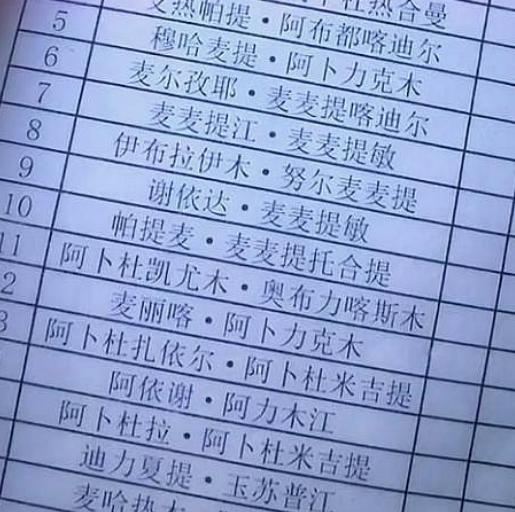 杜热合曼
热帕提·阿布都喀迪尔
5 穆哈麦提·阿卜力克木
6 麦尔孜耶·麦麦提喀迪尔
7 麦麦提江·麦麦提敏
8 伊布拉伊木·努尔麦麦提
9 谢依达·麦麦提敏
10 帕提麦·麦麦提托合提
11 阿卜杜凯尤木·奥布力喀斯木
2 麦丽喀·阿卜力克木
3 阿卜杜扎依尔·阿卜杜米吉提
阿依谢·阿力木江
阿卜杜拉·阿卜杜米吉提
迪力夏提·玉苏普江
麦哈热